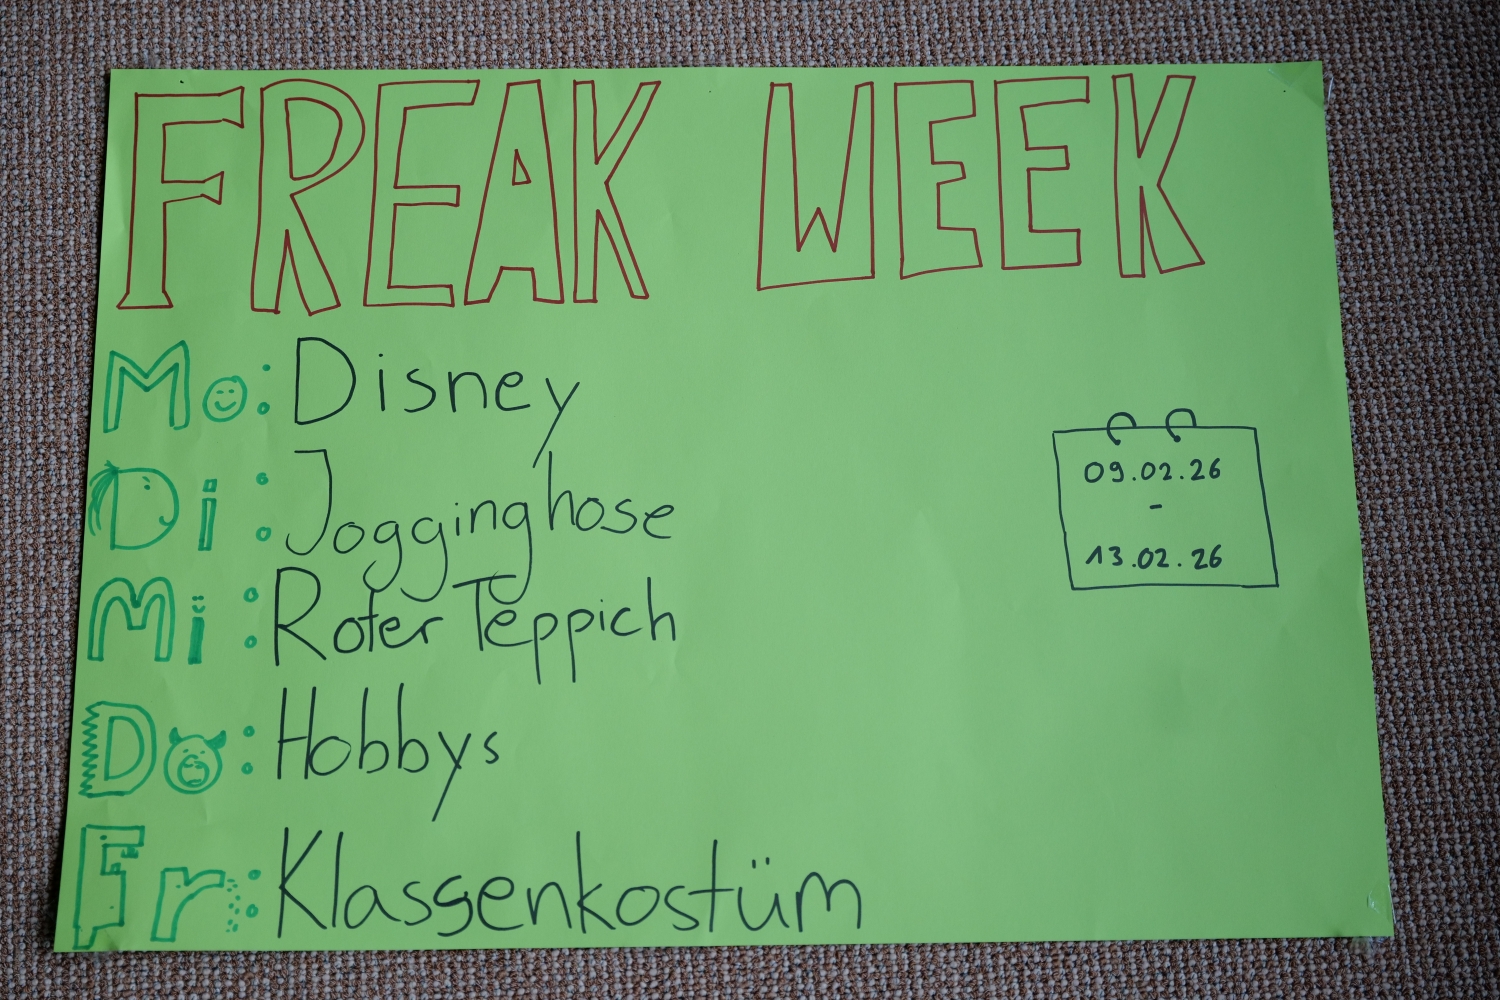 FREAK WEEK
Mo: Disney
Di: Jogginghose
Mi: Roter Teppich
Do: Hobbys
Fr: Klassenkostüm
09.02.26
-
13.02.26